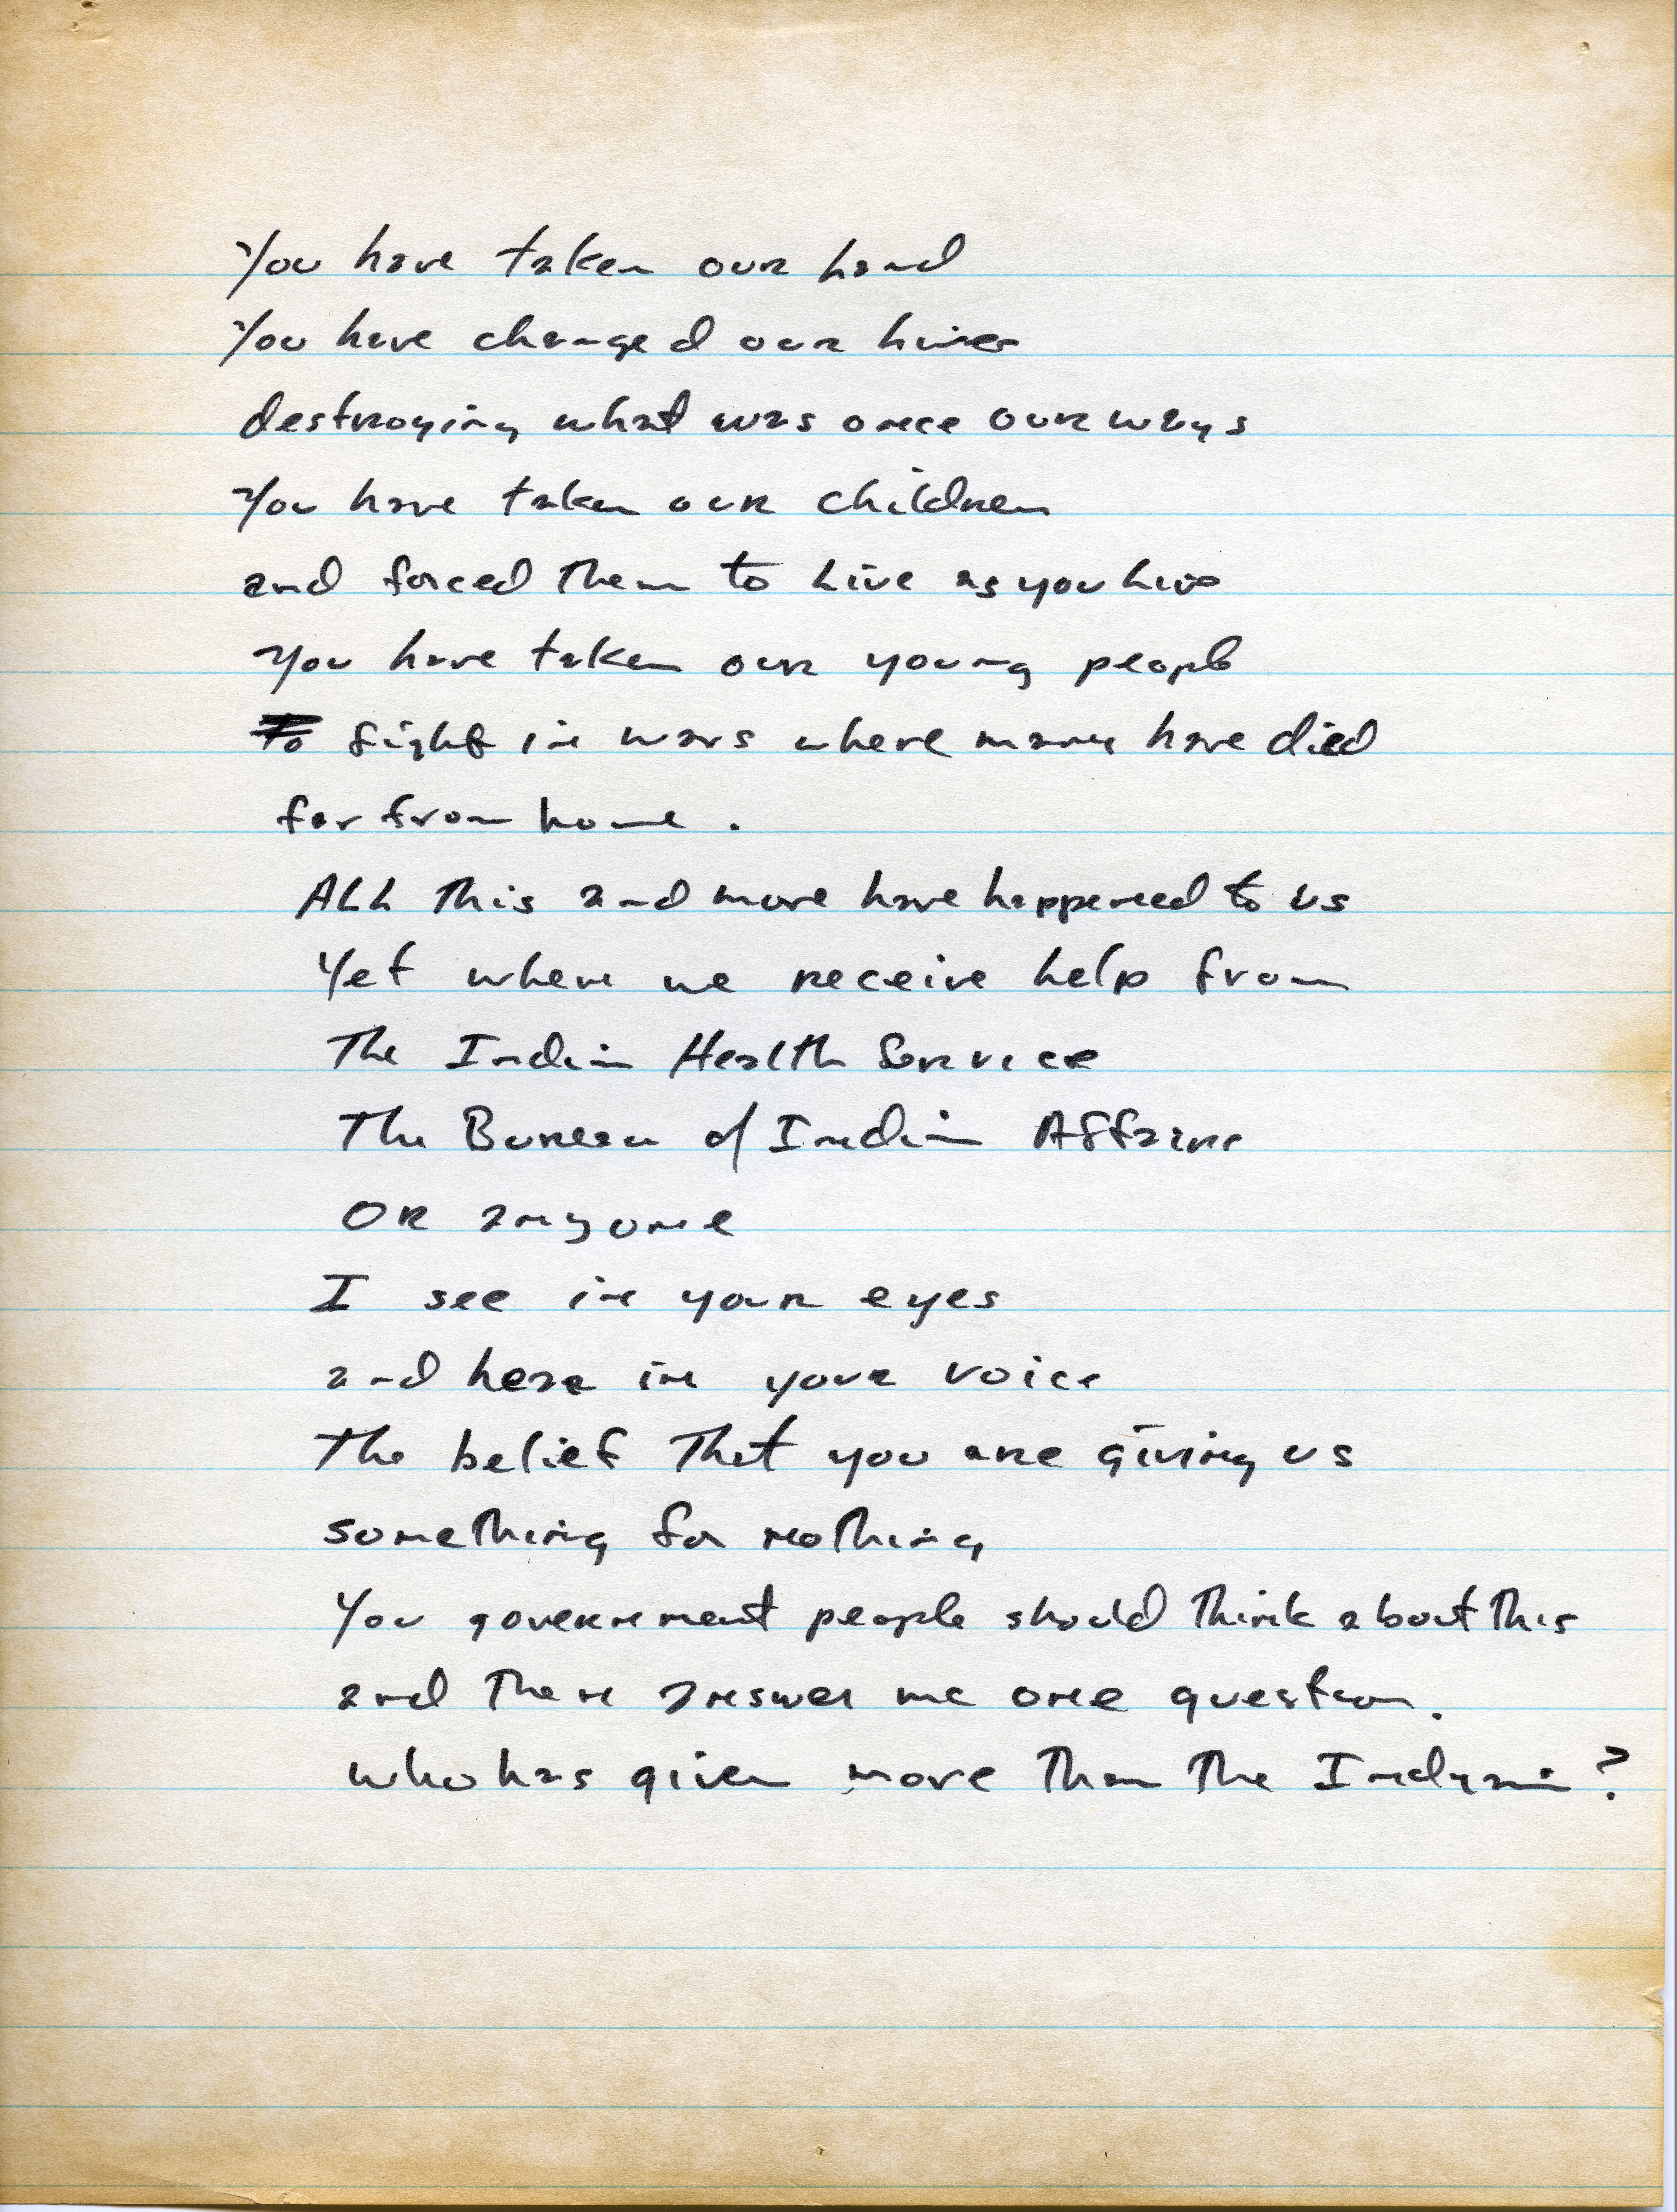 You have taken our land
You have changed our lives
destroying what was once our ways
You have taken our children
and forced them to live as you live
You have taken our young people
to fight in wars where many have died
far from home.
ALL this and more have happened to us
Yet when we receive help from
The Indian Health Service
The Bureau of Indian Affairs
OR anyone
I see in your eyes
and hear in your voice
The belief that you are giving us
something for nothing
You government people should think about this
and then answer me one question.
who has given more than the Indyan?